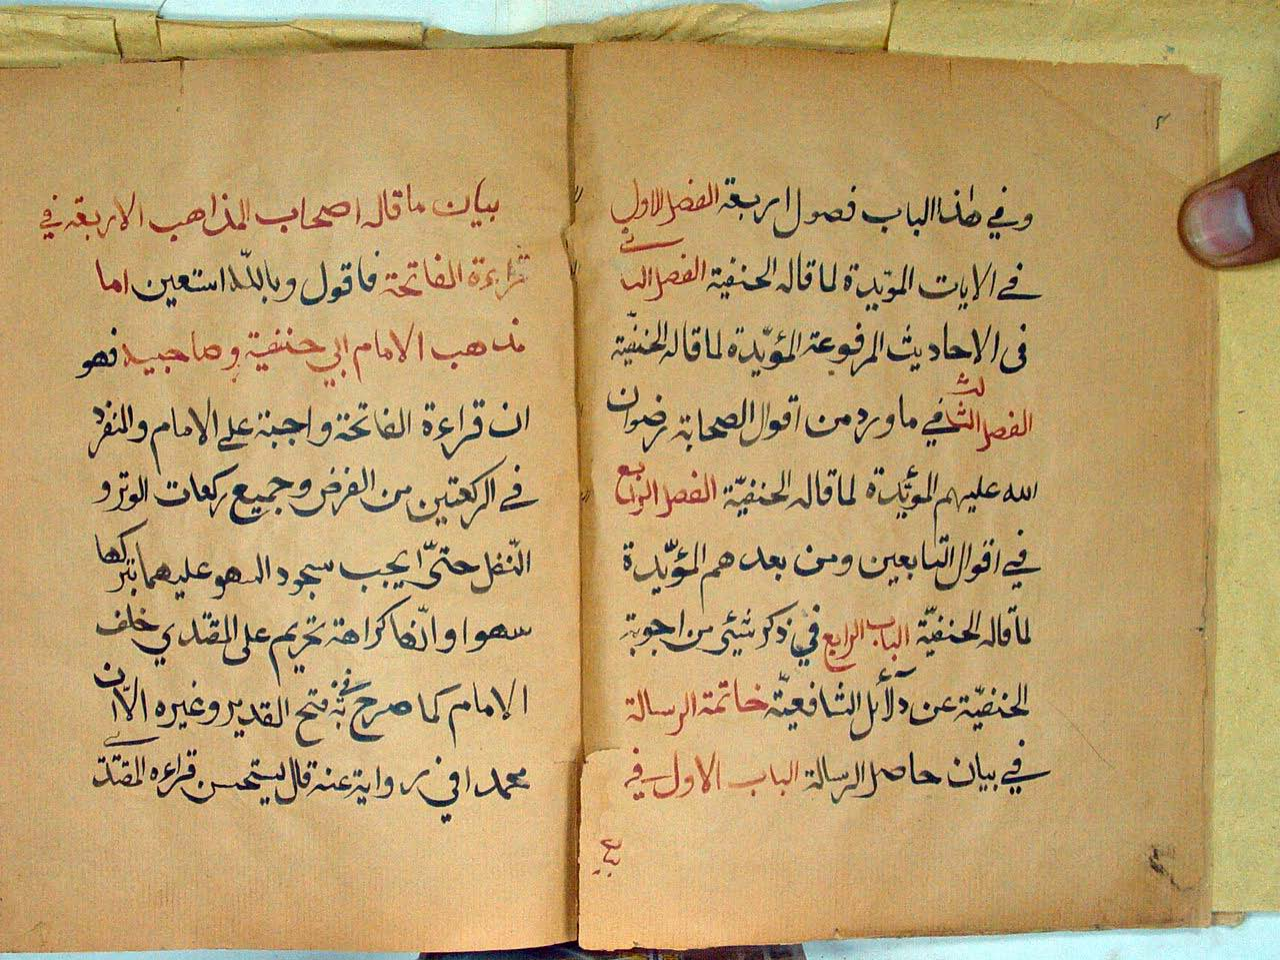 وفي هذا الباب فصول اربعة الفصل الاول
في الايات المؤيدة لما قاله الحنفية الفصل الثاني
فى الاحاديث المرفوعة المؤيّدة لما قاله الحنفيّة
الفصل الثالث في ما ورد من اقوال الصحابة رضوان
الله عليهم المؤيّدة لما قاله الحنفيّة الفصل الرابع
في اقوال التابعين ومن بعدهم المؤيّدة
لما قاله الحنفيّة الباب الرابع في ذكر شيئ من اجوبة
الحنفيّة عن دلآئل الشافعيّة خاتمة الرسالة
في بيان حاصل الرسالة الباب الاول في
بيان
بيان ما قاله اصحاب المذاهب الاربعة في
قراءة الفاتحة فاقول وبالله استعين اما
مذهب الامام ابي حنفية وصاحبيه فهو
ان قراءة الفاتحة واجبة على الامام والمنفرد
في الركعتين من الفرض وجميع ركعات الوتر و
النّفل حتىّ يجب سجود السهو عليهما بتركها
سهوا وانّها كراهة تحريم على المقتدي خلف
الامام كما صرح به في فتح القدير وغيره الاّ ان
محمدا في رواية عنه قال يستحسن قراءه المقتدي